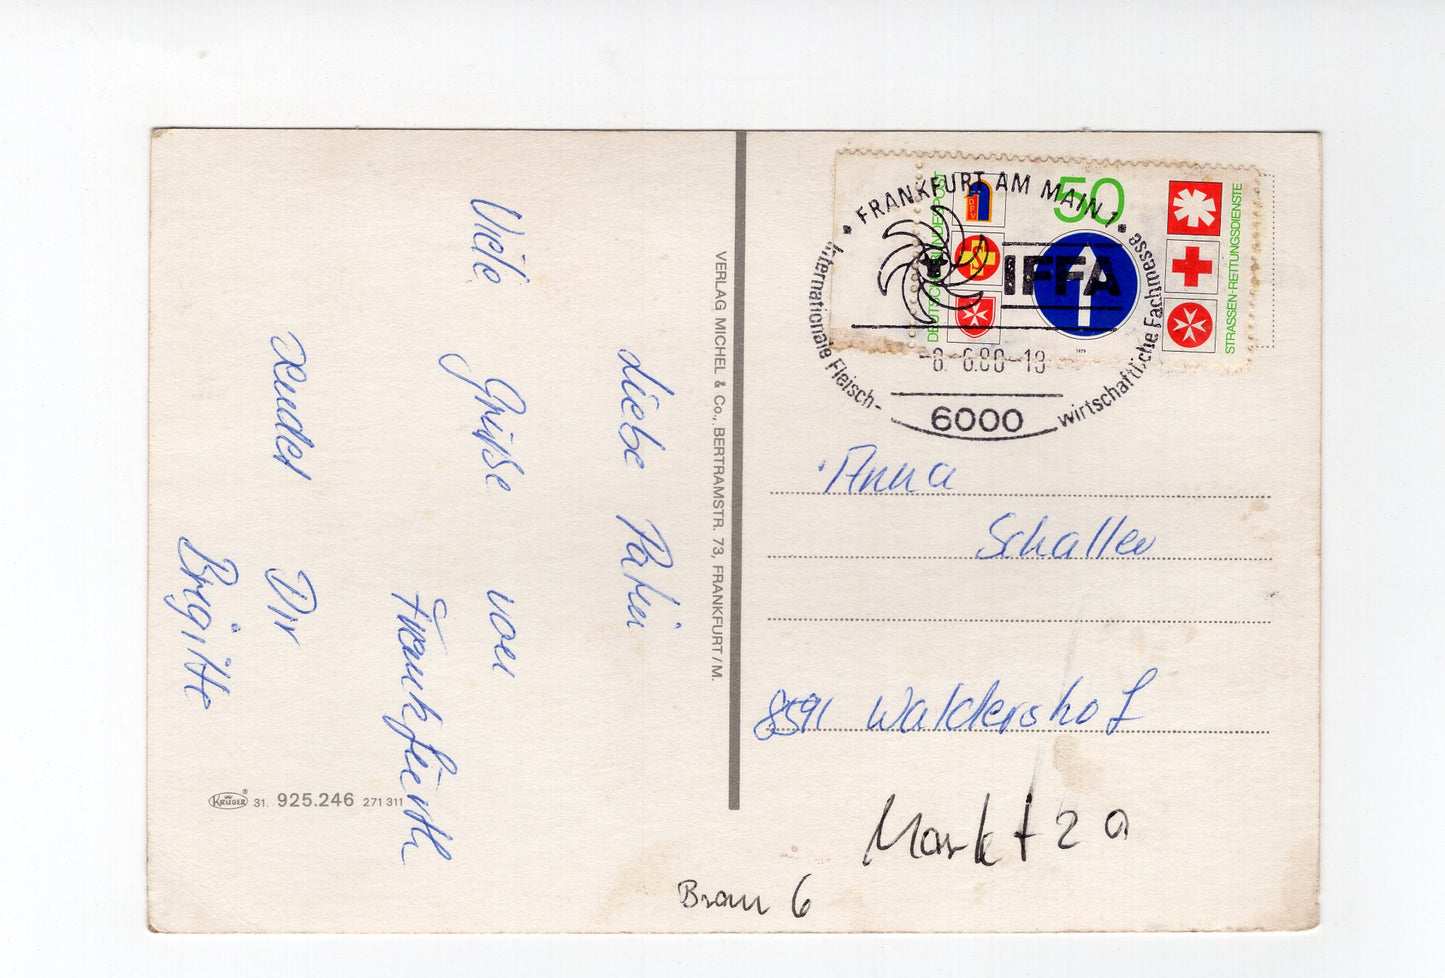 Liebe Patin
Viele Grüße von
Frankfurth
sendet Dir
Brigitte
VERLAG MICHEL & Co., BERTRAMSTR. 73, FRANKFURT/M.
KRÜGER ® 31. 925.246 271 311
DEUTSCHE BUNDESPOST
50
STRASSEN-RETTUNGSDIENSTE
1979
• FRANKFURT AM MAIN 1 •
IFFA
Internationale Fleisch-
wirtschaftliche Fachmesse
-8. 6.80-13
6000
Anna
Schaller
8591 Waldershof
Markt 20